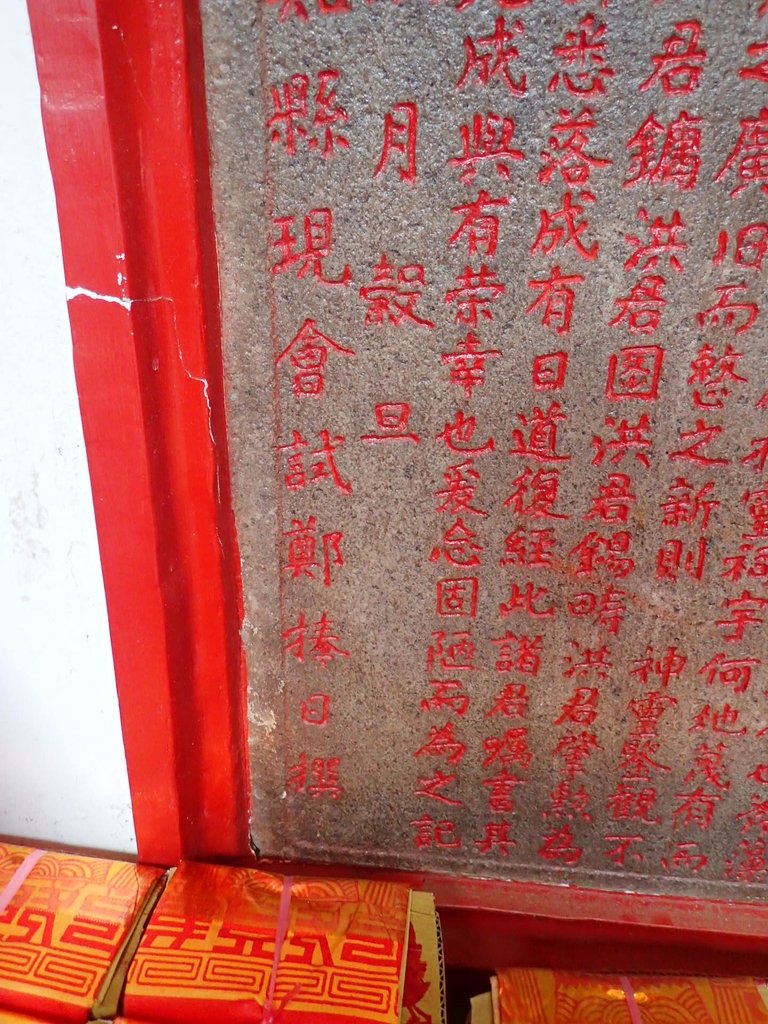 靈福宇何地蔑有而
之廣旧而整之新則神靈鑒觀不
君鏞洪君圖洪君錫疇洪君肇勲為
悉落成有日道復經此諸君囑書其
成與有荣幸也爰忘固陋而為之記
月穀旦
縣現會試鄭捧日撰